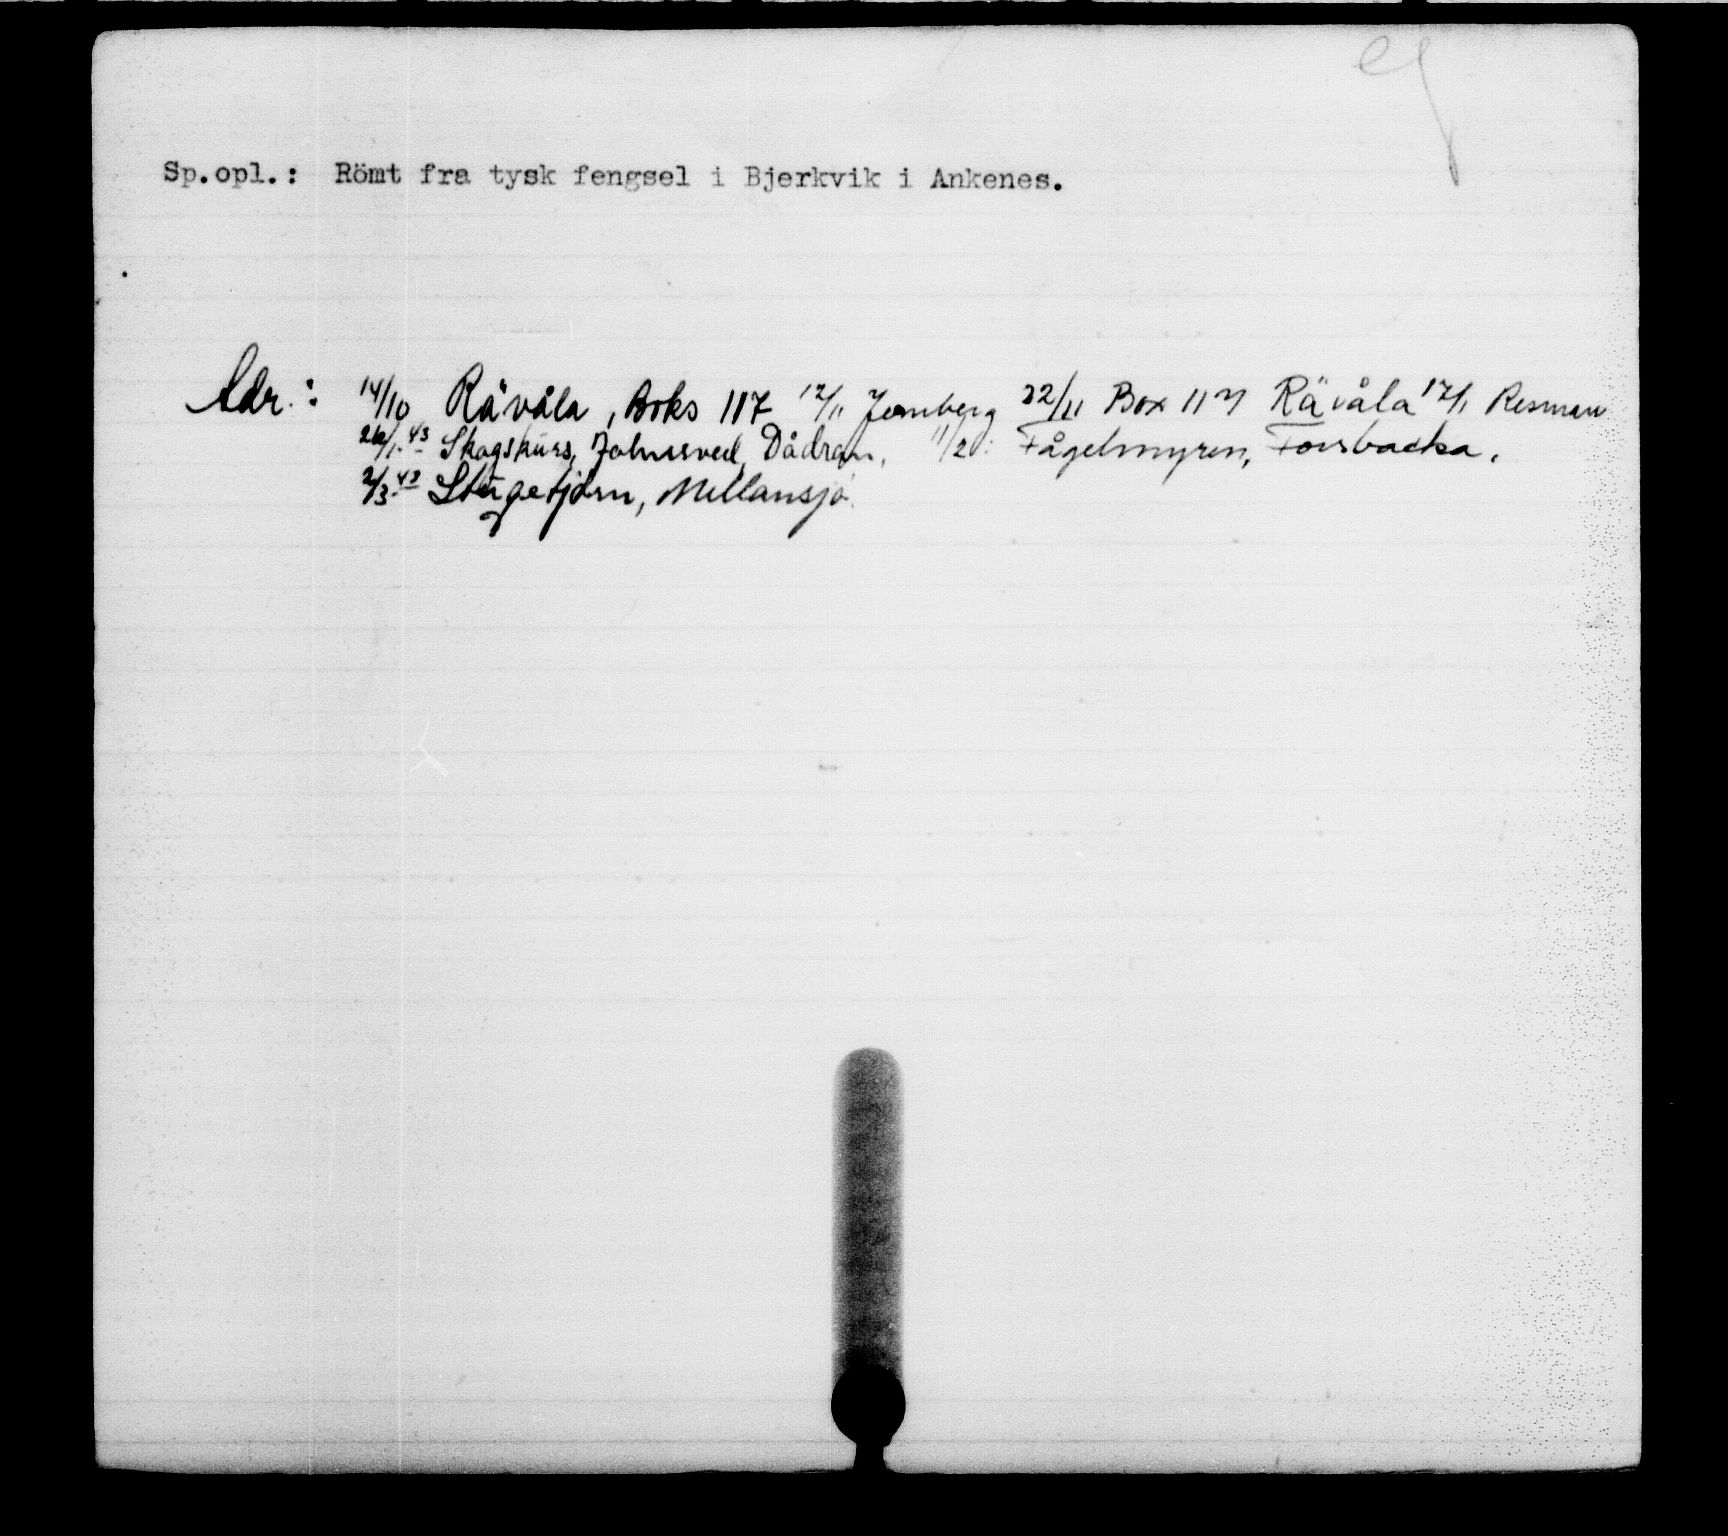 Sp.opl.: Römt fra tysk fengsel i Bjerkvik i Ankenes.
Adr.: 14/10 Råvåla, Boks 117 12/11 Jernberg 22/11 Box 117 Rävåla 17/1 Resman
26/1-43 Skogskurs, Johnsved, Dådran, 11/2: Fågelmyren, Forsbacka.
2/3-43 Stugetjärn, Mellansjö.